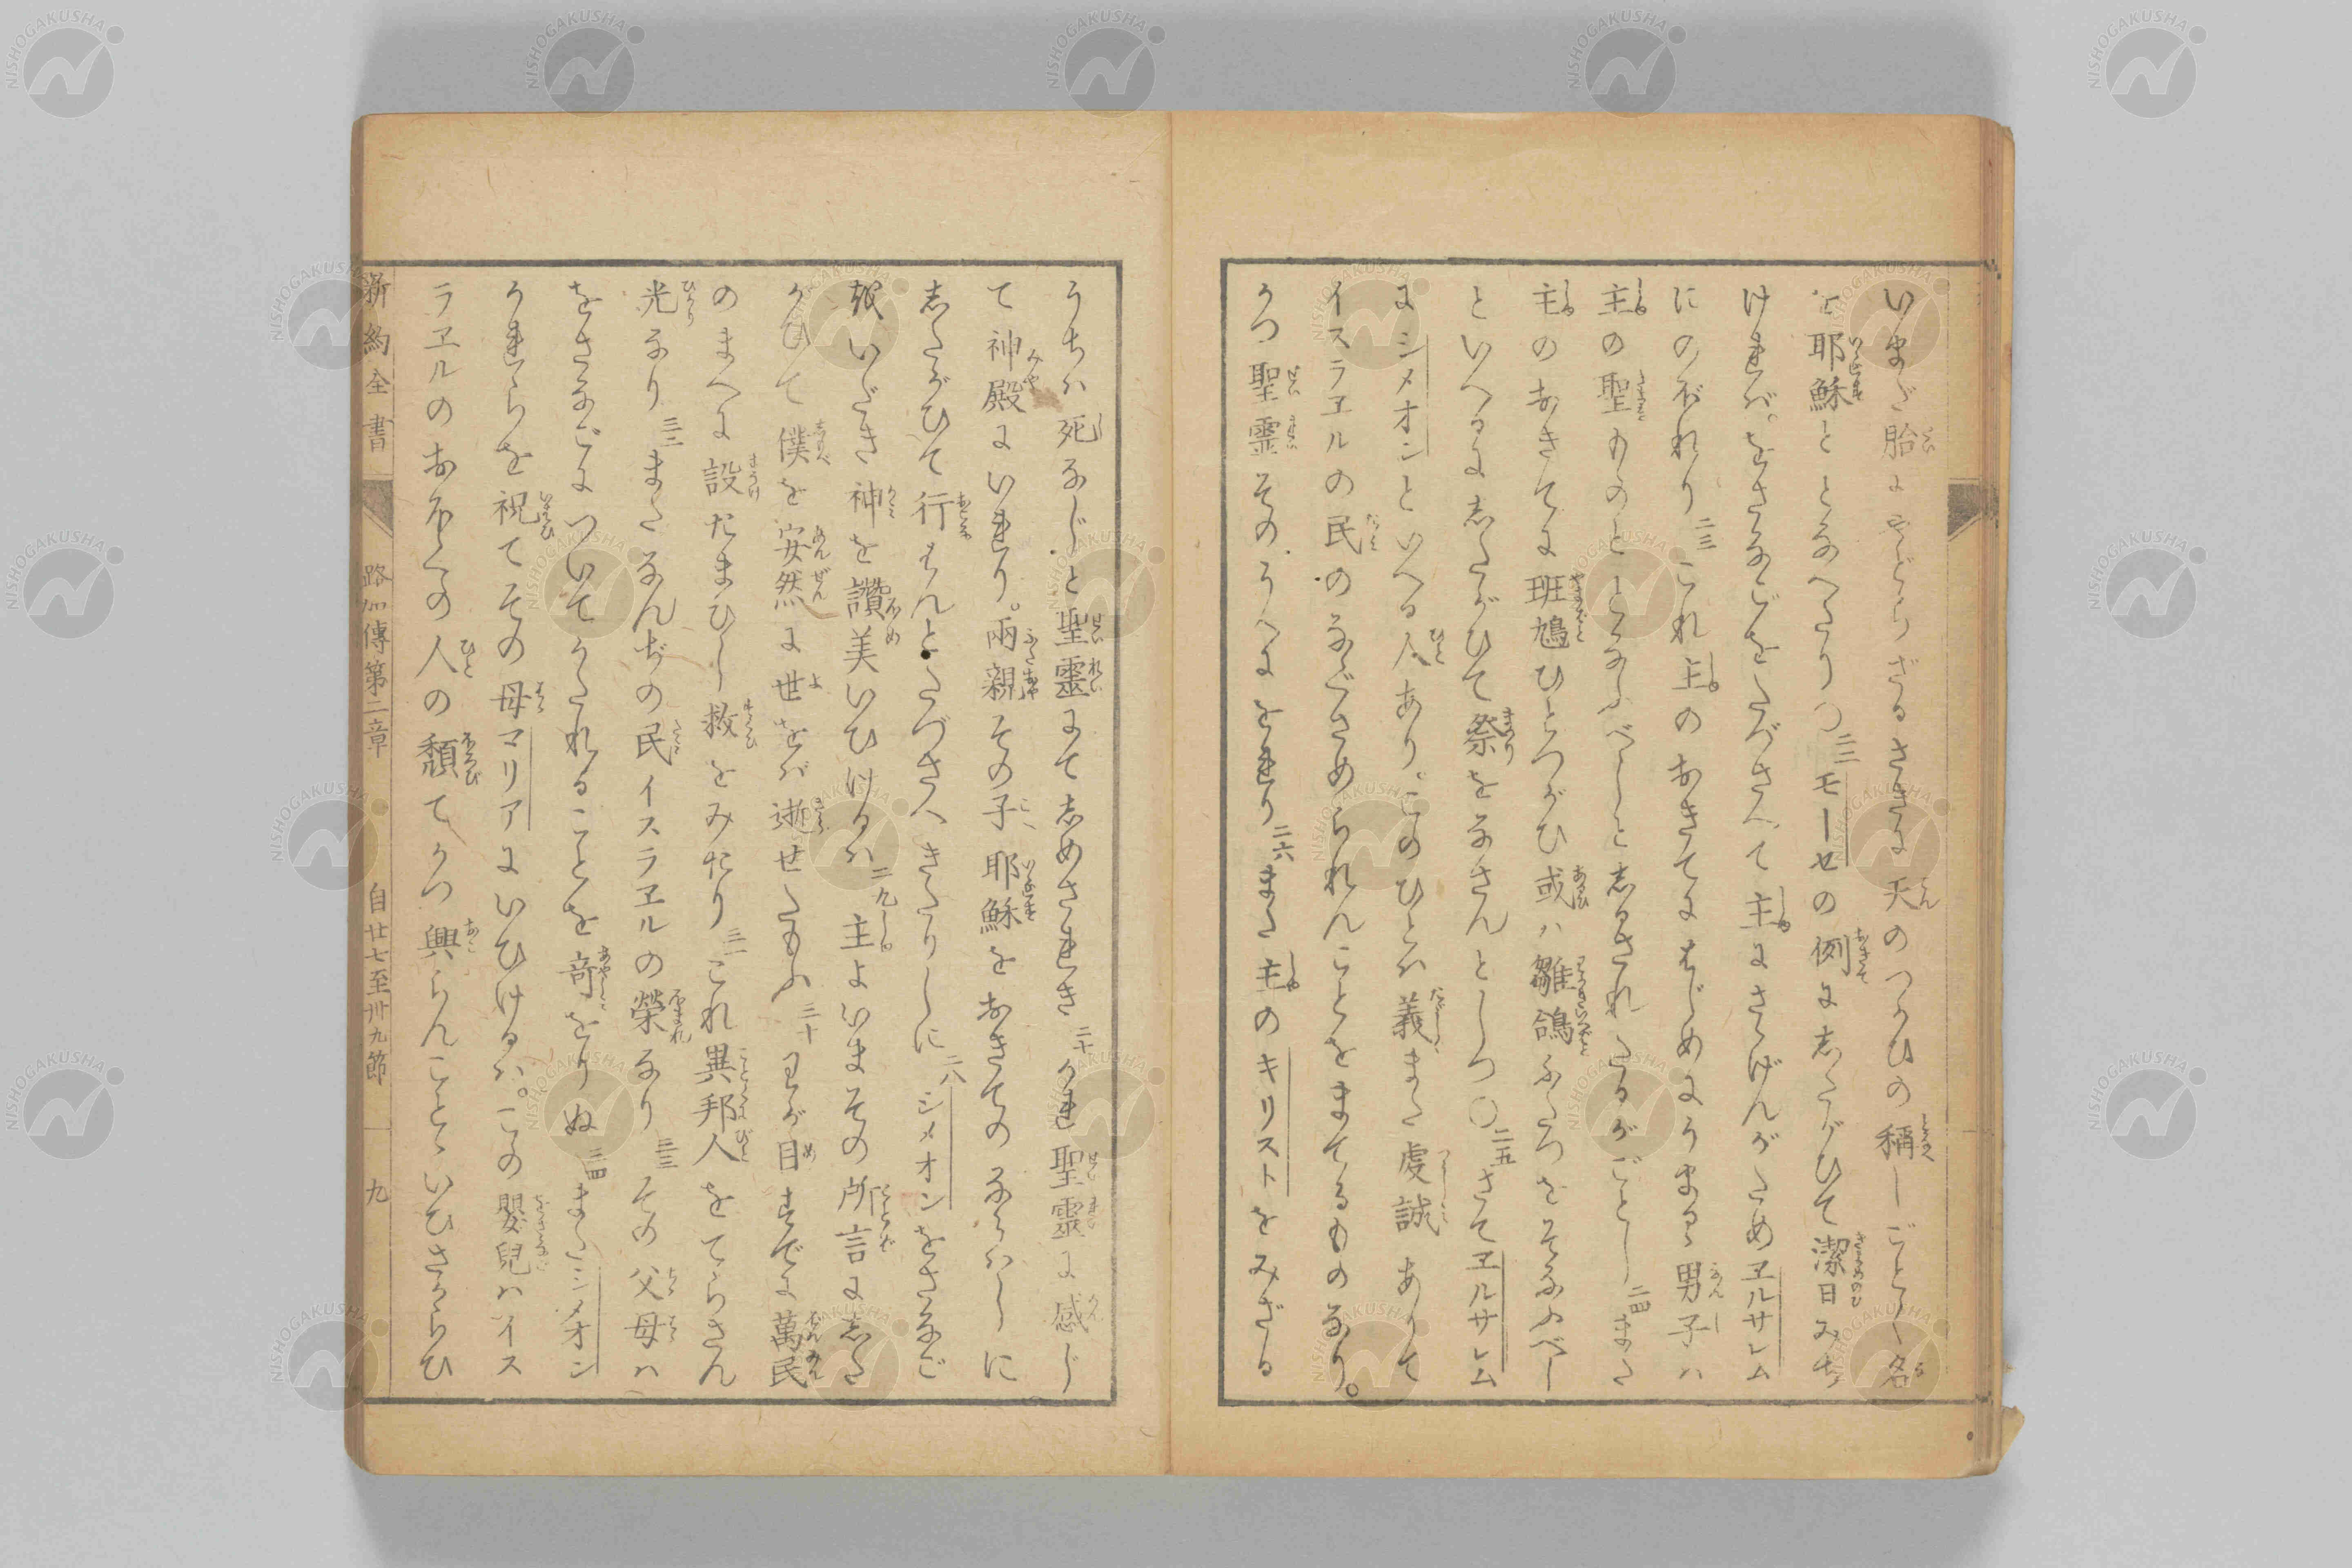 いまだ胎にやどらざるさきに天のつかひの稱しごとく名
を耶穌ととなへたり〇二二モーセの例にしたがひて潔日みち
ければ。をさなごをたづさへて主にさゝげんがためヱルサレム
にのぼれり二三これ主のおきてにはじめにうまるゝ男子ハ
主の聖ものととなふべしとしるされたるがごとし二四また
主のおきてに班鳩ひとつがひ或ハ雛鴿ふたつをそなふべし
といへるにしたがひて祭をなさんとしつ〇二五さてヱルサレム
にシメオンといへる人あり。このひとハ義また虔誠ありて
イスラヱルの民のなぐさめられんことをまてるものなり。
かつ聖霊そのうへにをれり二六また主のキリストをみざる
うちハ死なじと聖靈にてしめされき二七かれ聖靈に感じ
て神殿にいれり。兩親その子耶穌をおきてのならハしに
したがひて行はんとたづさへきたりしに二八シメオンをさなご
を いだき神を讚美いひけるハ二九主よいまその所言にした
かひて僕を安然に世をバ逝せたもふ三十わが目すでに萬民
のまへに設たまひし救をみたり三一これ異邦人をてらさん
光なり三二またなんぢの民イスラヱルの榮なり三三その父母ハ
をさなごについてかたれることを奇をりぬ三四またシメオン
かれらを祝てその母マリアにいひけるハ。この嬰兒ハイス
ラヱルのおほくの人の頽てかつ興らんことゝいひさからひ
新約全書 路加傳第二章 自廿七至卅九節 九
NISHOGAKUSHA